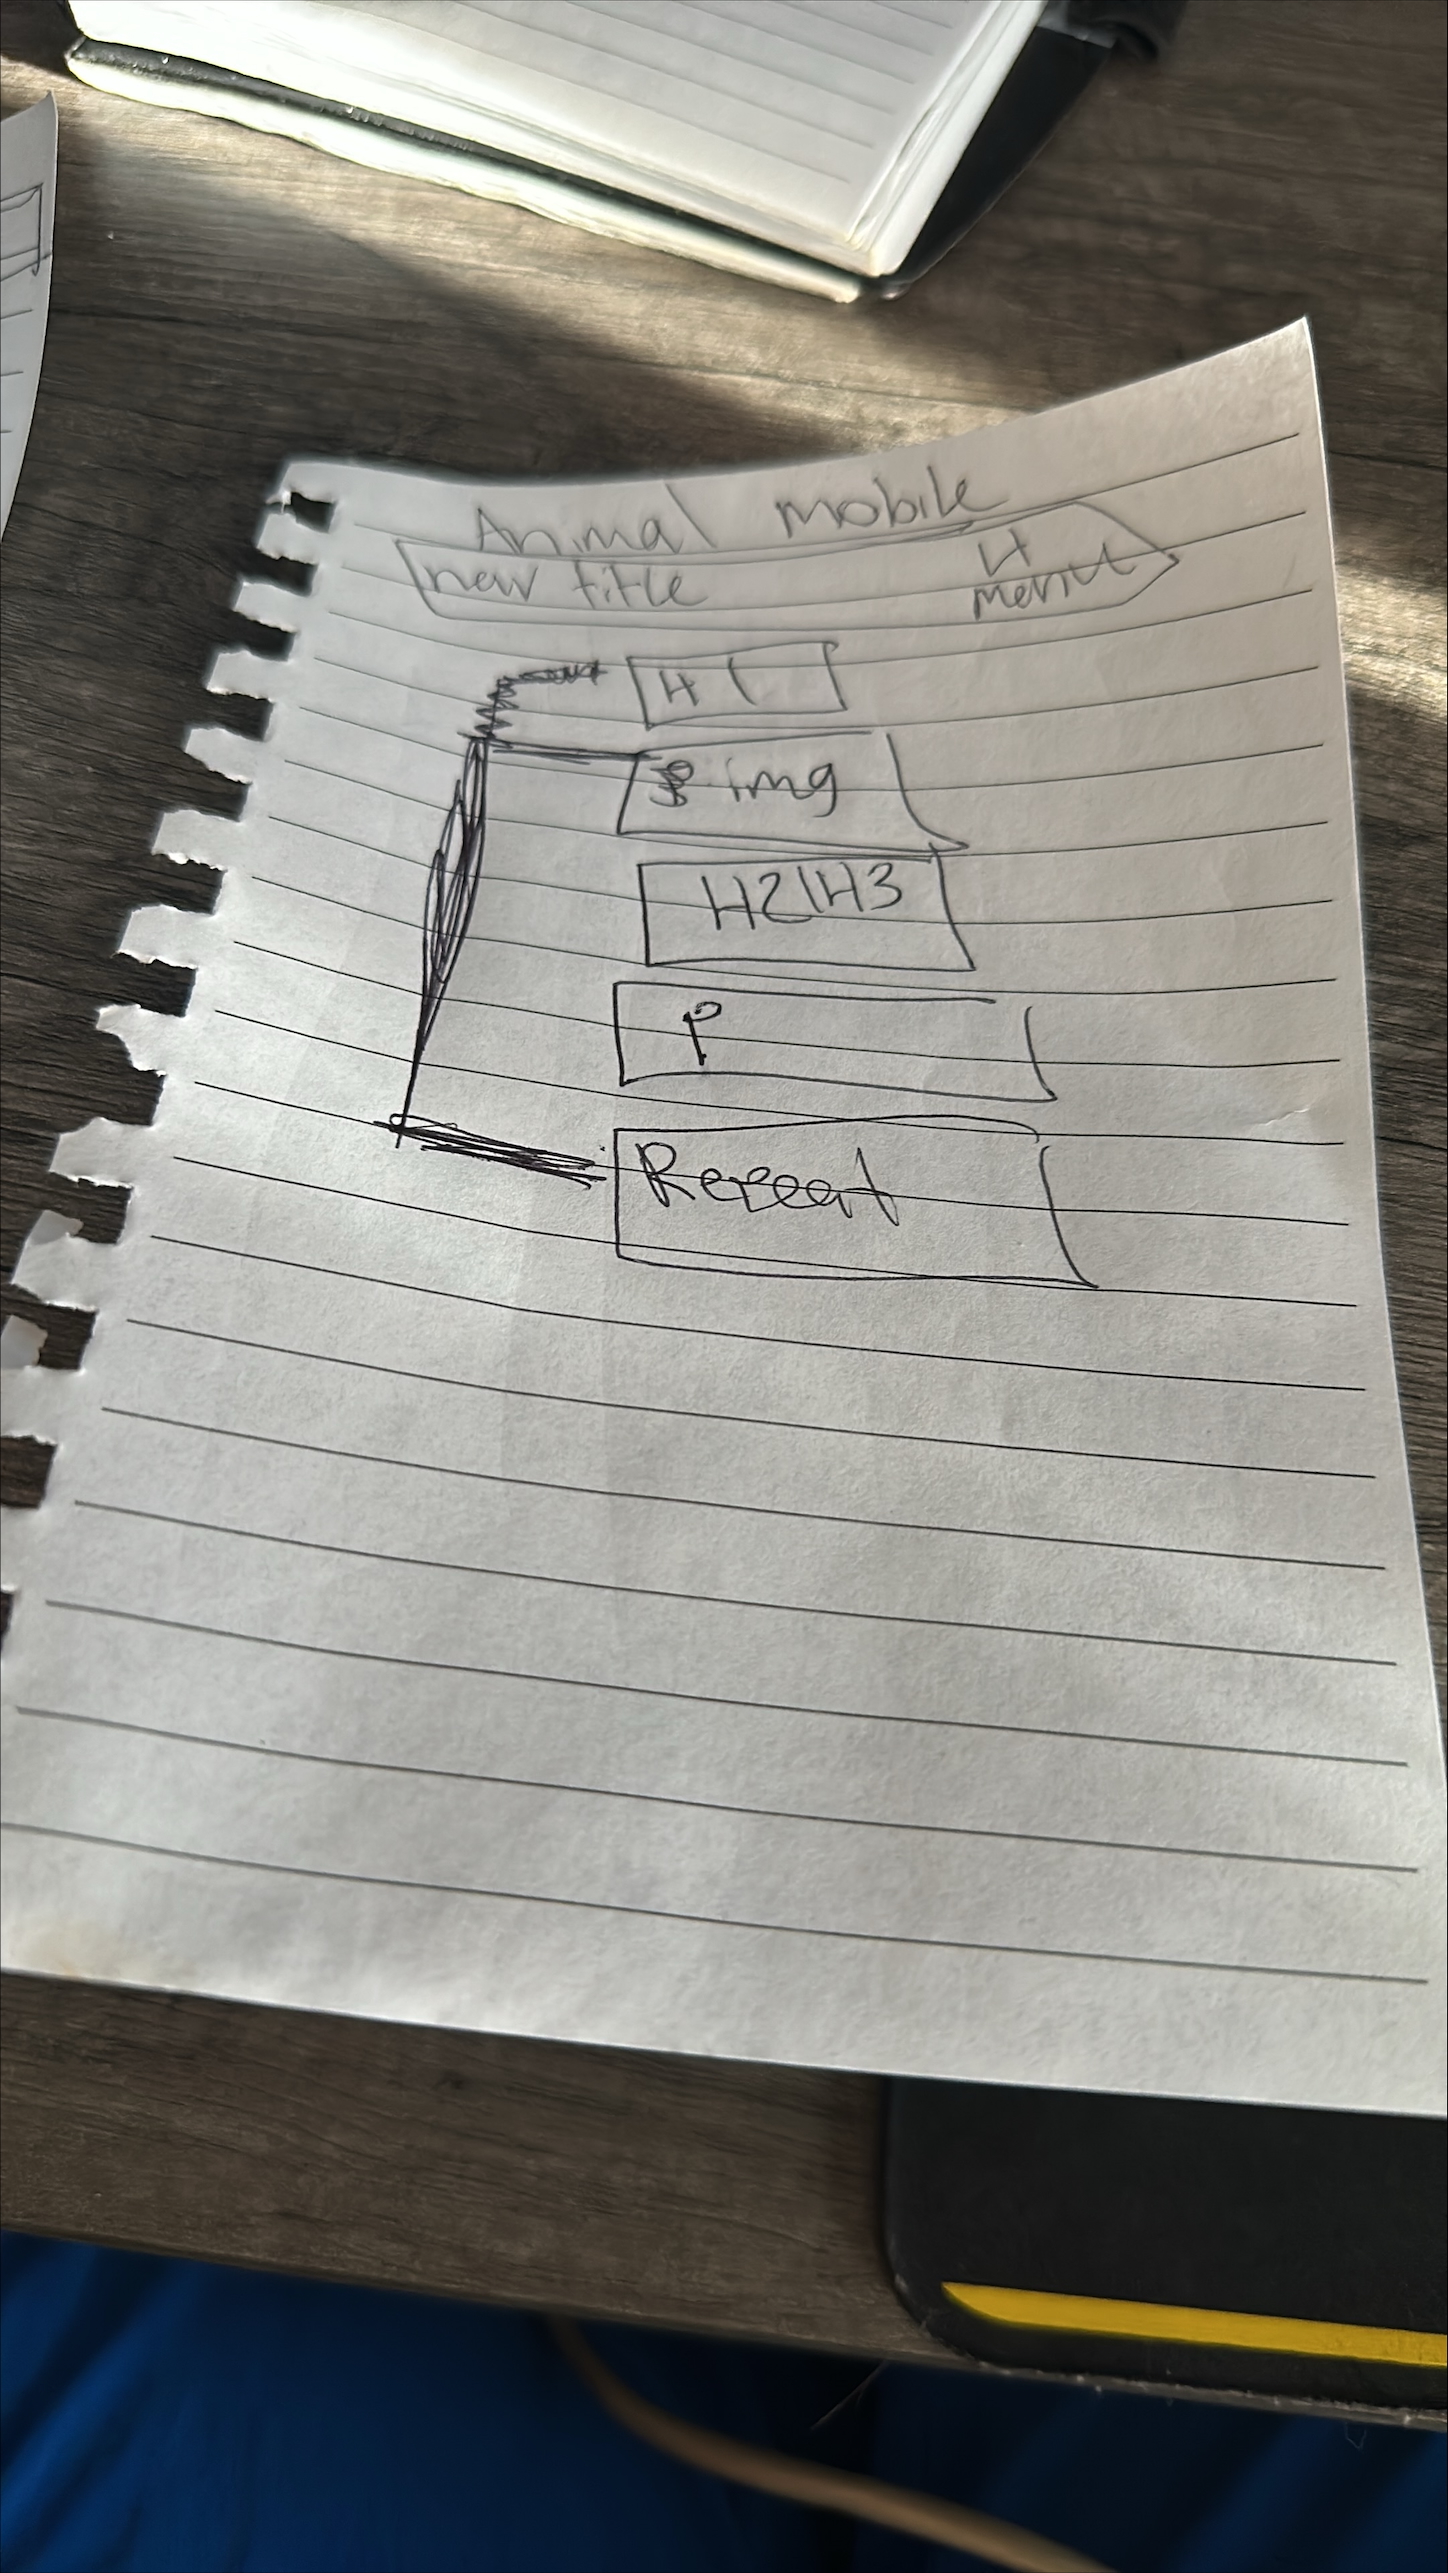 Animal mobile
new title
menu
H1
img
H2/H3
P
Repeat